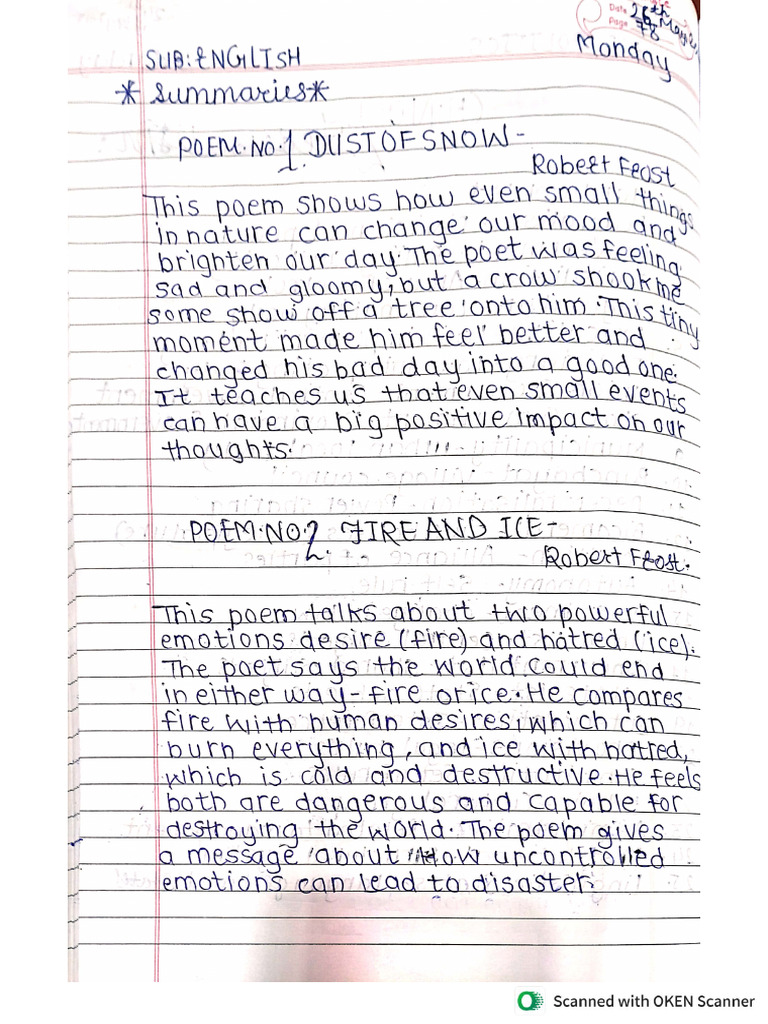 Date 26th May
Page 78
SUB: ENGLISH
Monday
*Summaries*
POEM.NO.1 DUST OF SNOW -
Robert Frost
This poem shows how even small things
in nature can change our mood and
brighten our day. The poet was feeling
sad and gloomy, but a crow shook me
some show off a tree onto him. This tiny
moment made him feel better and
changed his bad day into a good one.
It teaches us that even small events
can have a big positive impact on our
thoughts.
POEM.NO.2. FIRE AND ICE -
Robert Frost.
This poem talks about two powerful
emotions desire (fire) and hatred (ice).
The poet says the world could end
in either way - fire or ice. He compares
fire with human desires, which can
burn everything, and ice with hatred,
which is cold and destructive. He feels
both are dangerous and capable for
destroying the world. The poem gives
a message about How uncontrolled
emotions can lead to disaster.
Scanned with OKEN Scanner